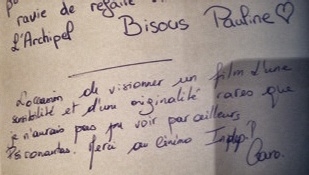 ravie de refaire
L'Archipel
Bisous Pauline ♡
L'occasion de visionner un film d'une
sensibilité et d'une originalité rares que
je n'aurais pas pu voir par ailleurs
Merci au cinéma
Caro.